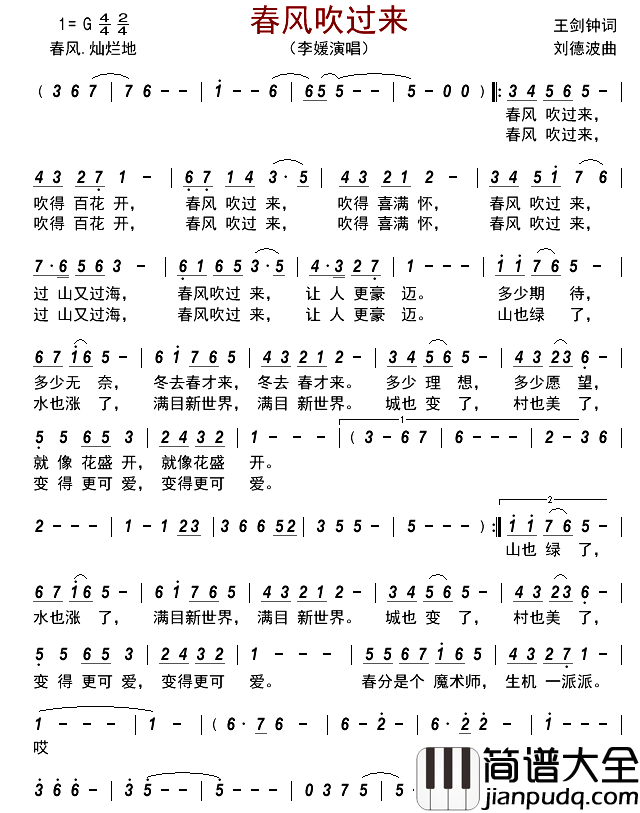 春风吹过来
1=G 4/4 2/4
王剑钟词
春风.灿烂地
（李媛演唱）
刘德波曲
( 3 6 7 | 7 6 - - | 1 - - 6 | 6 5 5 - - | 5 - 0 0 ) ‖: 3 4 5 6 5 - |
春风 吹过来,
春风 吹过来,
4 3 2 7 1 - | 6 7 1 4 3· 5 | 4 3 2 1 2 - | 3 4 5 1 7 6 |
吹得 百花 开, 春风 吹过 来, 吹得 喜满 怀, 春风 吹过 来,
吹得 百花 开, 春风 吹过 来, 吹得 喜满 怀, 春风 吹过 来,
7· 6 5 6 3 - | 6 1 6 5 3· 5 | 4· 3 2 7 - | 1 1 7 6 5 - |
过 山又过海, 春风吹过 来, 让 人 更豪 迈。 多少期 待,
过 山又过海, 春风吹过 来, 让 人 更豪 迈。 山也绿 了,
6 7 1 6 5 - | 6 1 7 6 5 | 4 3 2 1 2 - | 3 4 5 6 5 - | 4 3 2 3 6 - |
多少无 奈, 冬去春才来, 冬去 春才来。 多少 理 想, 多少愿 望,
水也涨 了, 满目新世界, 满目 新世界。 城也 变 了, 村也美 了,
5 5 6 5 3 | 2 4 3 2 | 1 - - - | ( 3 - 6 7 | 6 - - - | 2 - 3 6 |
1
就 像 花盛 开, 就像花盛 开。
变 得 更可 爱, 变得更可 爱。
2 - - - | 1 - 1 2 3 | 3 6 6 5 2 | 3 5 5 - | 5 - - - ) :‖ 1 1 7 6 5 - |
2
山也 绿 了,
6 7 1 6 5 - | 6 1 7 6 5 | 4 3 2 1 2 - | 3 4 5 6 5 - | 4 3 2 3 6 - |
水也涨 了, 满目新世界, 满目 新世界。 城也 变 了, 村也美 了,
5 5 6 5 3 | 2 4 3 2 | 1 - - - | 5 5 6 7 1 6 5 | 4 3 2 7 1 - |
变 得 更可 爱, 变得更可 爱。 春分是个 魔术师, 生机 一派派。
1 - - - | 1 - - - | ( 6· 7 6 - | 6· 2 2 - | 6· 2 2 - | 1 - - -
哎
3 6 6 - | 3 5 - - | 5 - - - | 0 3 7 5 |
简谱大全
jianpudq.com